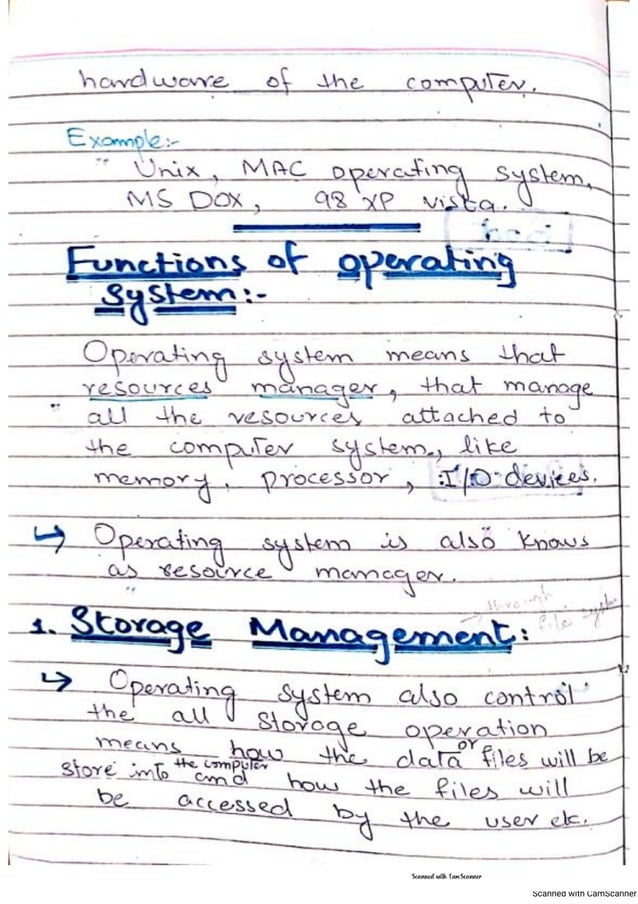 hardware of the computer.
Example:-
Unix, MAC operating system,
MS DOX, 98 XP vista.
Functions of operating
System:-
Operating system means that
resources manager, that manage
all the resources attached to
the computer system, like
memory, processor, I/O devices.
↳ Operating system is also knows
as resource manager.
→ through
file system
1. Storage Management:
↳ Operating system also control
the all storage operation
means how the data or files will be
store into the computer and how the files will
be accessed by the user etc.
Scanned with CamScanner
Scanned with CamScanner